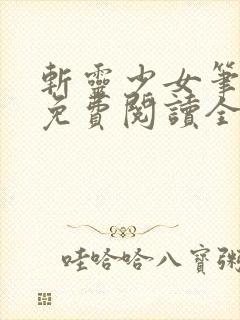 斬靈少女筆
免費閱讀全
哇哈哈八寶粥